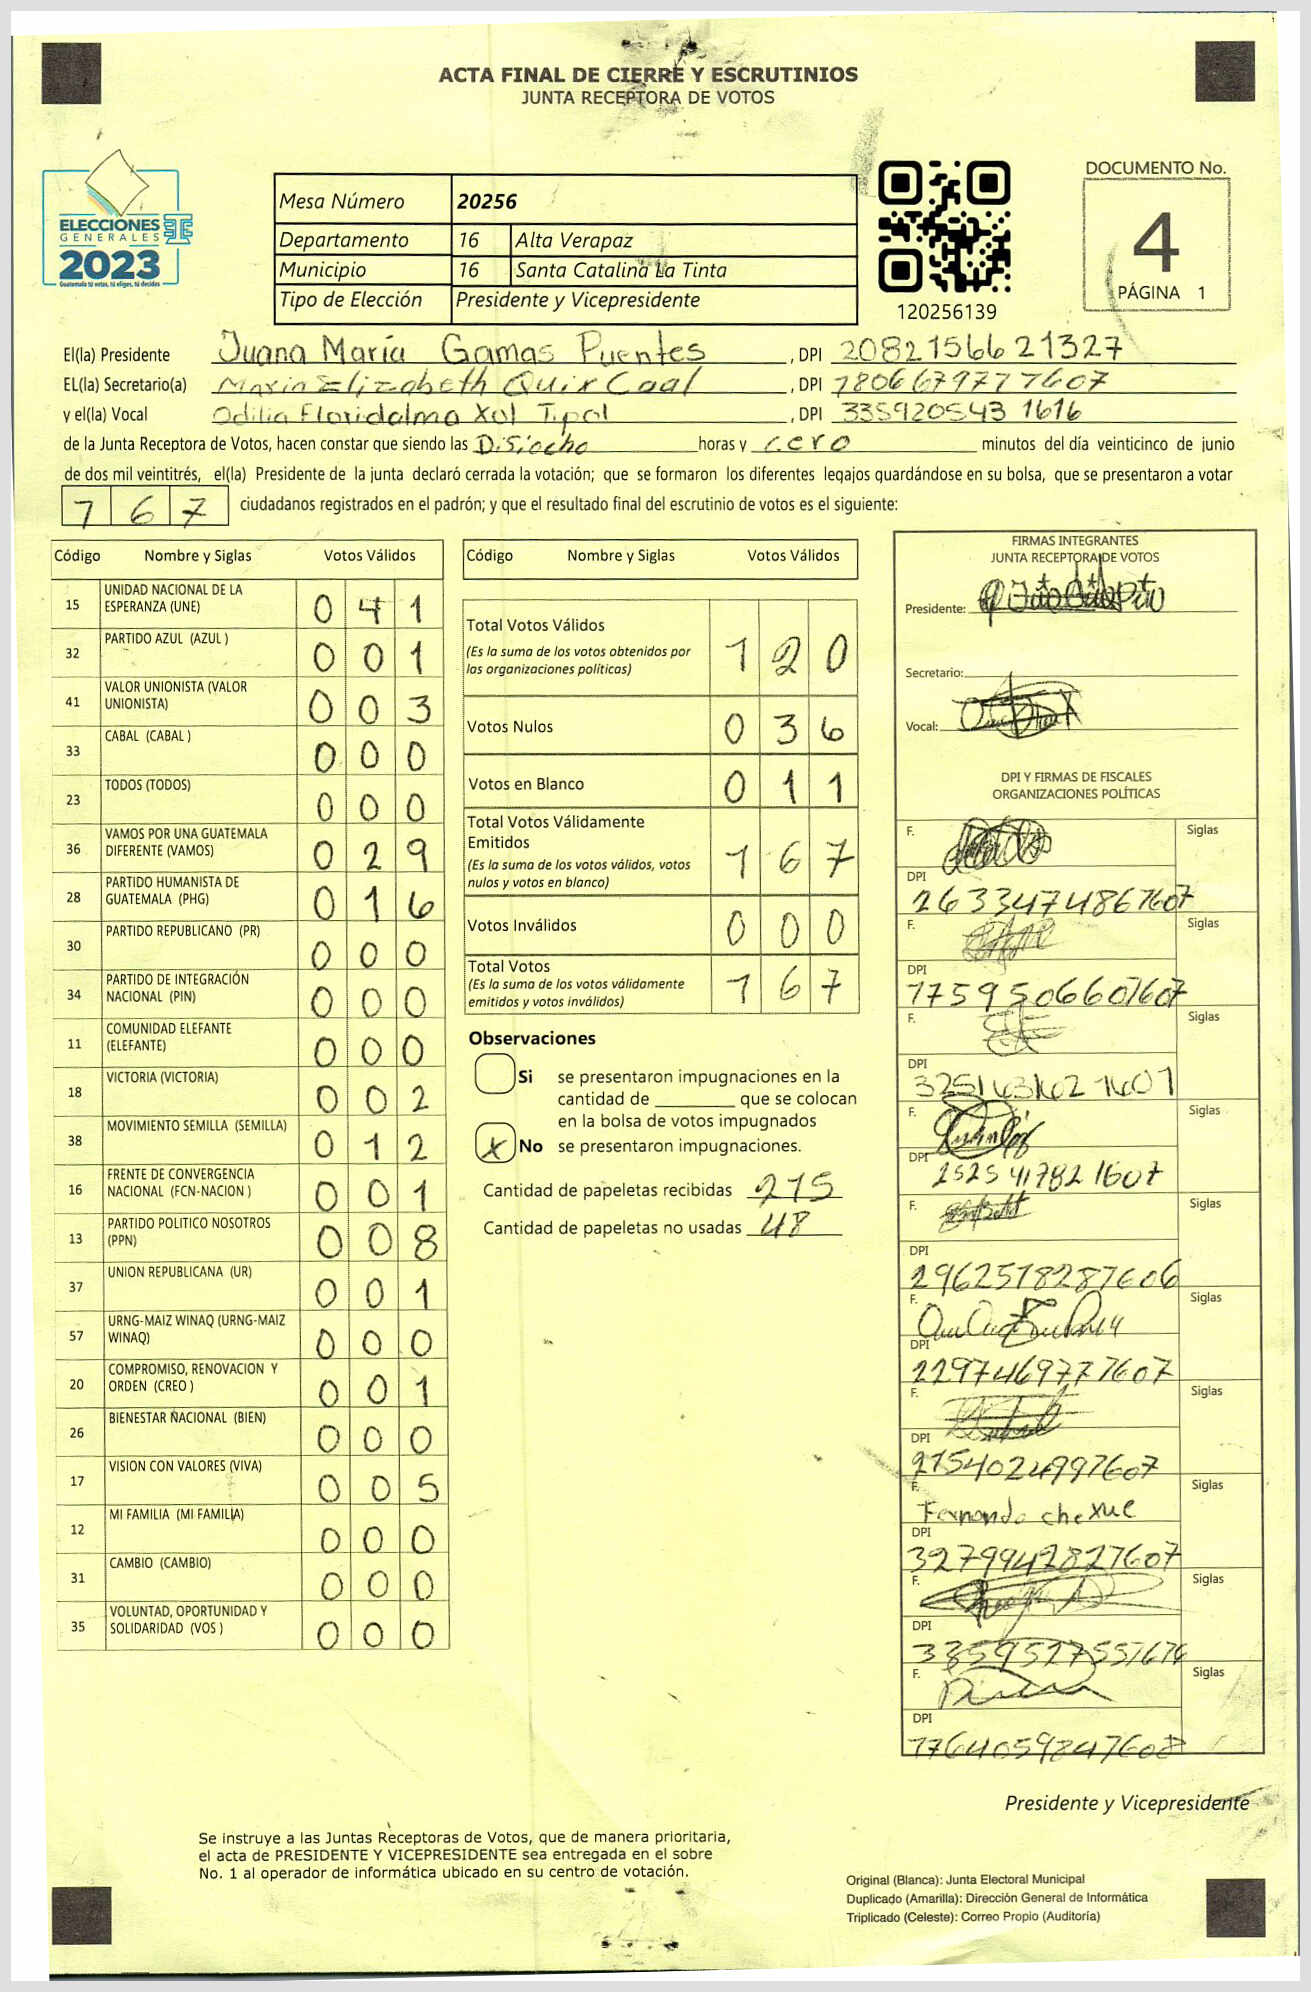 ACTA FINAL DE CIERRE Y ESCRUTINIOS
JUNTA RECEPTORA DE VOTOS
ELECCIONES
GENERALES
2023
Guatemala tú votas, tú eliges, tú decides
Mesa Número 20256
Departamento 16 Alta Verapaz
Municipio 16 Santa Catalina La Tinta
Tipo de Elección Presidente y Vicepresidente
120256139
DOCUMENTO No.
4
PÁGINA 1
El(la) Presidente Juana María Gamas Puentes, DPI 2082156621327
EL(la) Secretario(a) Maria Elizabeth Quix Caal, DPI 1806679771607
y el(la) Vocal Odilia Floridalma Xol Tipol, DPI 3359205431616
de la Junta Receptora de Votos, hacen constar que siendo las Disiocho horas y cero minutos del día veinticinco de junio
de dos mil veintitrés, el(la) Presidente de la junta declaró cerrada la votación; que se formaron los diferentes legajos guardándose en su bolsa, que se presentaron a votar
167 ciudadanos registrados en el padrón; y que el resultado final del escrutinio de votos es el siguiente:
Código Nombre y Siglas Votos Válidos
15 UNIDAD NACIONAL DE LA ESPERANZA (UNE) 0 4 1
32 PARTIDO AZUL (AZUL ) 0 0 1
41 VALOR UNIONISTA (VALOR UNIONISTA) 0 0 3
33 CABAL (CABAL ) 0 0 0
23 TODOS (TODOS) 0 0 0
36 VAMOS POR UNA GUATEMALA DIFERENTE (VAMOS) 0 2 9
28 PARTIDO HUMANISTA DE GUATEMALA (PHG) 0 1 6
30 PARTIDO REPUBLICANO (PR) 0 0 0
34 PARTIDO DE INTEGRACIÓN NACIONAL (PIN) 0 0 0
11 COMUNIDAD ELEFANTE (ELEFANTE) 0 0 0
18 VICTORIA (VICTORIA) 0 0 2
38 MOVIMIENTO SEMILLA (SEMILLA) 0 1 2
16 FRENTE DE CONVERGENCIA NACIONAL (FCN-NACION ) 0 0 1
13 PARTIDO POLITICO NOSOTROS (PPN) 0 0 8
37 UNION REPUBLICANA (UR) 0 0 1
57 URNG-MAIZ WINAQ (URNG-MAIZ WINAQ) 0 0 0
20 COMPROMISO, RENOVACION Y ORDEN (CREO ) 0 0 1
26 BIENESTAR NACIONAL (BIEN) 0 0 0
17 VISION CON VALORES (VIVA) 0 0 5
12 MI FAMILIA (MI FAMILIA) 0 0 0
31 CAMBIO (CAMBIO) 0 0 0
35 VOLUNTAD, OPORTUNIDAD Y SOLIDARIDAD (VOS ) 0 0 0
Código Nombre y Siglas Votos Válidos
Total Votos Válidos 1 2 0
(Es la suma de los votos obtenidos por
las organizaciones políticas)
Votos Nulos 0 3 6
Votos en Blanco 0 1 1
Total Votos Válidamente
Emitidos 1 6 7
(Es la suma de los votos válidos, votos
nulos y votos en blanco)
Votos Inválidos 0 0 0
Total Votos 1 6 7
(Es la suma de los votos válidamente
emitidos y votos inválidos)
Observaciones
Si se presentaron impugnaciones en la
cantidad de ________ que se colocan
en la bolsa de votos impugnados
X No se presentaron impugnaciones.
Cantidad de papeletas recibidas 215
Cantidad de papeletas no usadas 48
FIRMAS INTEGRANTES
JUNTA RECEPTORA DE VOTOS
Presidente:
Secretario:
Vocal:
DPI Y FIRMAS DE FISCALES
ORGANIZACIONES POLÍTICAS
F. Siglas
DPI
2633474867607
F. Siglas
DPI
1759506601607
F. Siglas
DPI
F. Siglas
DPI
2525417821607
F. Siglas
DPI
2962518281606
F. Siglas
DPI
2297469771607
F. Siglas
DPI
2154024991607
F. Fernando chexue Siglas
DPI
3279942821607
F. Siglas
DPI
F. Siglas
DPI
1764059847608
Presidente y Vicepresidente
Se instruye a las Juntas Receptoras de Votos, que de manera prioritaria,
el acta de PRESIDENTE Y VICEPRESIDENTE sea entregada en el sobre
No. 1 al operador de informática ubicado en su centro de votación.
Original (Blanca): Junta Electoral Municipal
Duplicado (Amarilla): Dirección General de Informática
Triplicado (Celeste): Correo Propio (Auditoría)